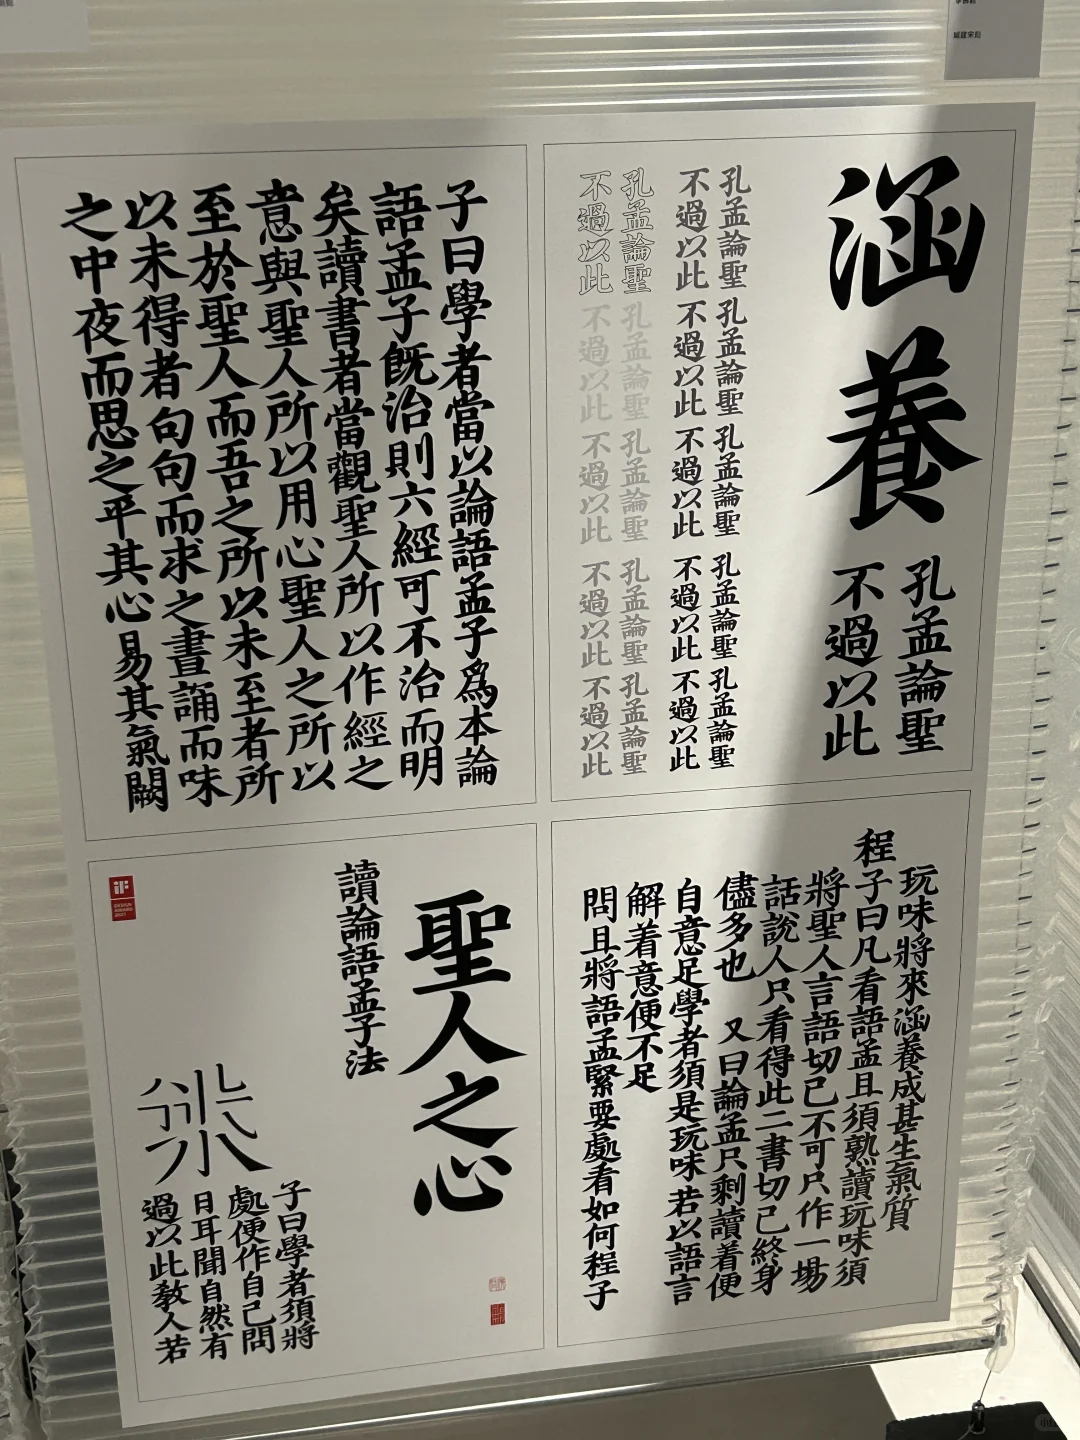 涵養
孔孟論聖
不過以此
孔孟論聖
不過以此
孔孟論聖
不過以此
孔孟論聖
不過以此
孔孟論聖
不過以此
孔孟論聖
不過以此
孔孟論聖
不過以此
孔孟論聖
不過以此
孔孟論聖
不過以此
孔孟論聖
不過以此
孔孟論聖
不過以此
子曰學者當以論語孟子爲本論
語孟子旣治則六經可不治而明
矣讀書者當觀聖人所以作經之
意與聖人所以用心聖人之所以
至於聖人而吾之所以未至者所
以未得者句句而求之晝誦而味
之中夜而思之平其心易其氣闕
玩味將來涵養成甚生氣質
程子曰凡看語孟且須熟讀玩味須
將聖人言語切己不可只作一場
話說人只看得此二書切己終身
儘多也 又曰論孟只剩讀着便
自意足學者須是玩味若以語言
解着意便不足
問且將語孟緊要處看如何程子
聖人之心
讀論語孟子法
子曰學者須將
處便作自己問
日耳聞自然有
過以此教人若
iF
DESIGN
AWARD
2021